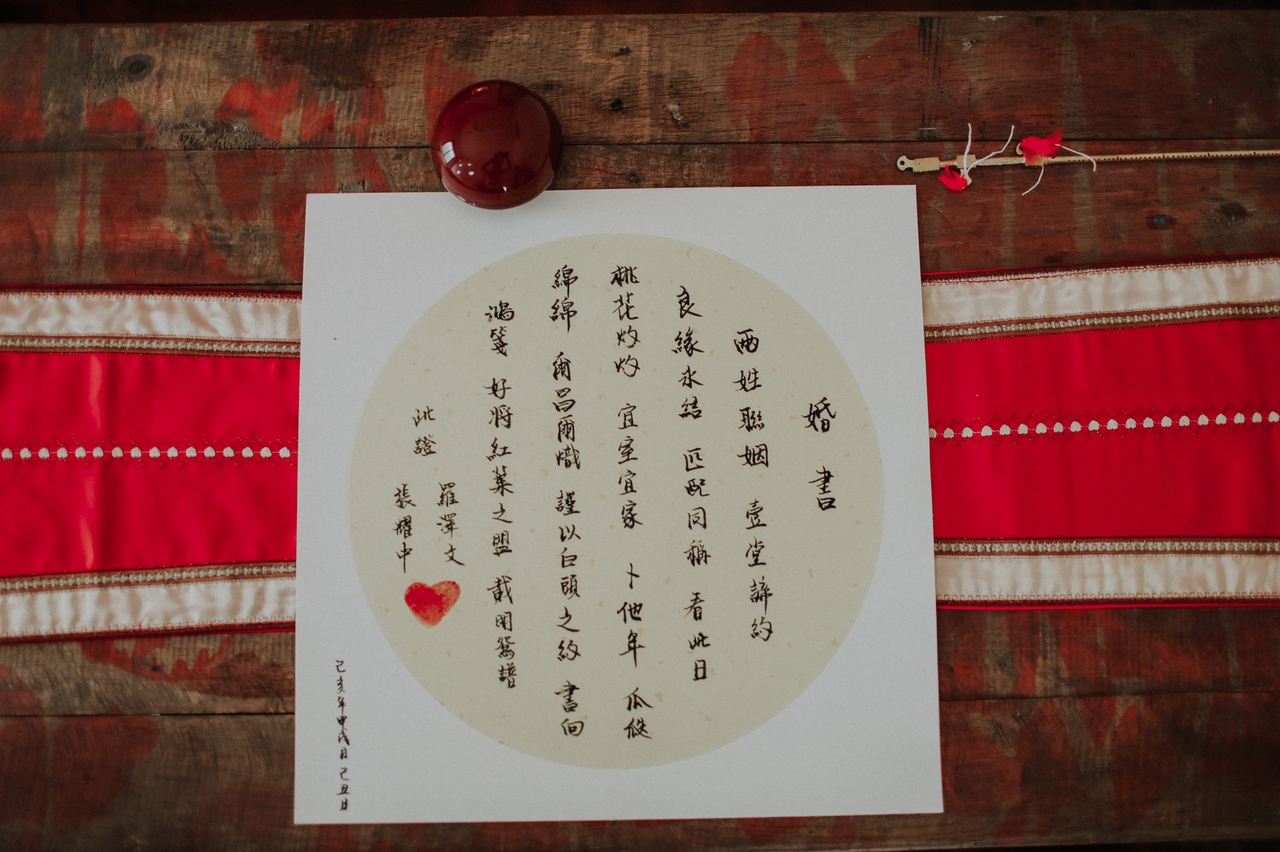 婚 書
兩姓聯姻 壹堂諦約
良緣永結 匹配同稱 看此日
桃花灼灼 宜室宜家 卜他年 瓜瓞
綿綿 爾昌爾熾 謹以白頭之約 書向
鴻箋 好將紅葉之盟 載明鴛譜
此證
羅澤文
張耀中
己亥年甲戌日己丑日